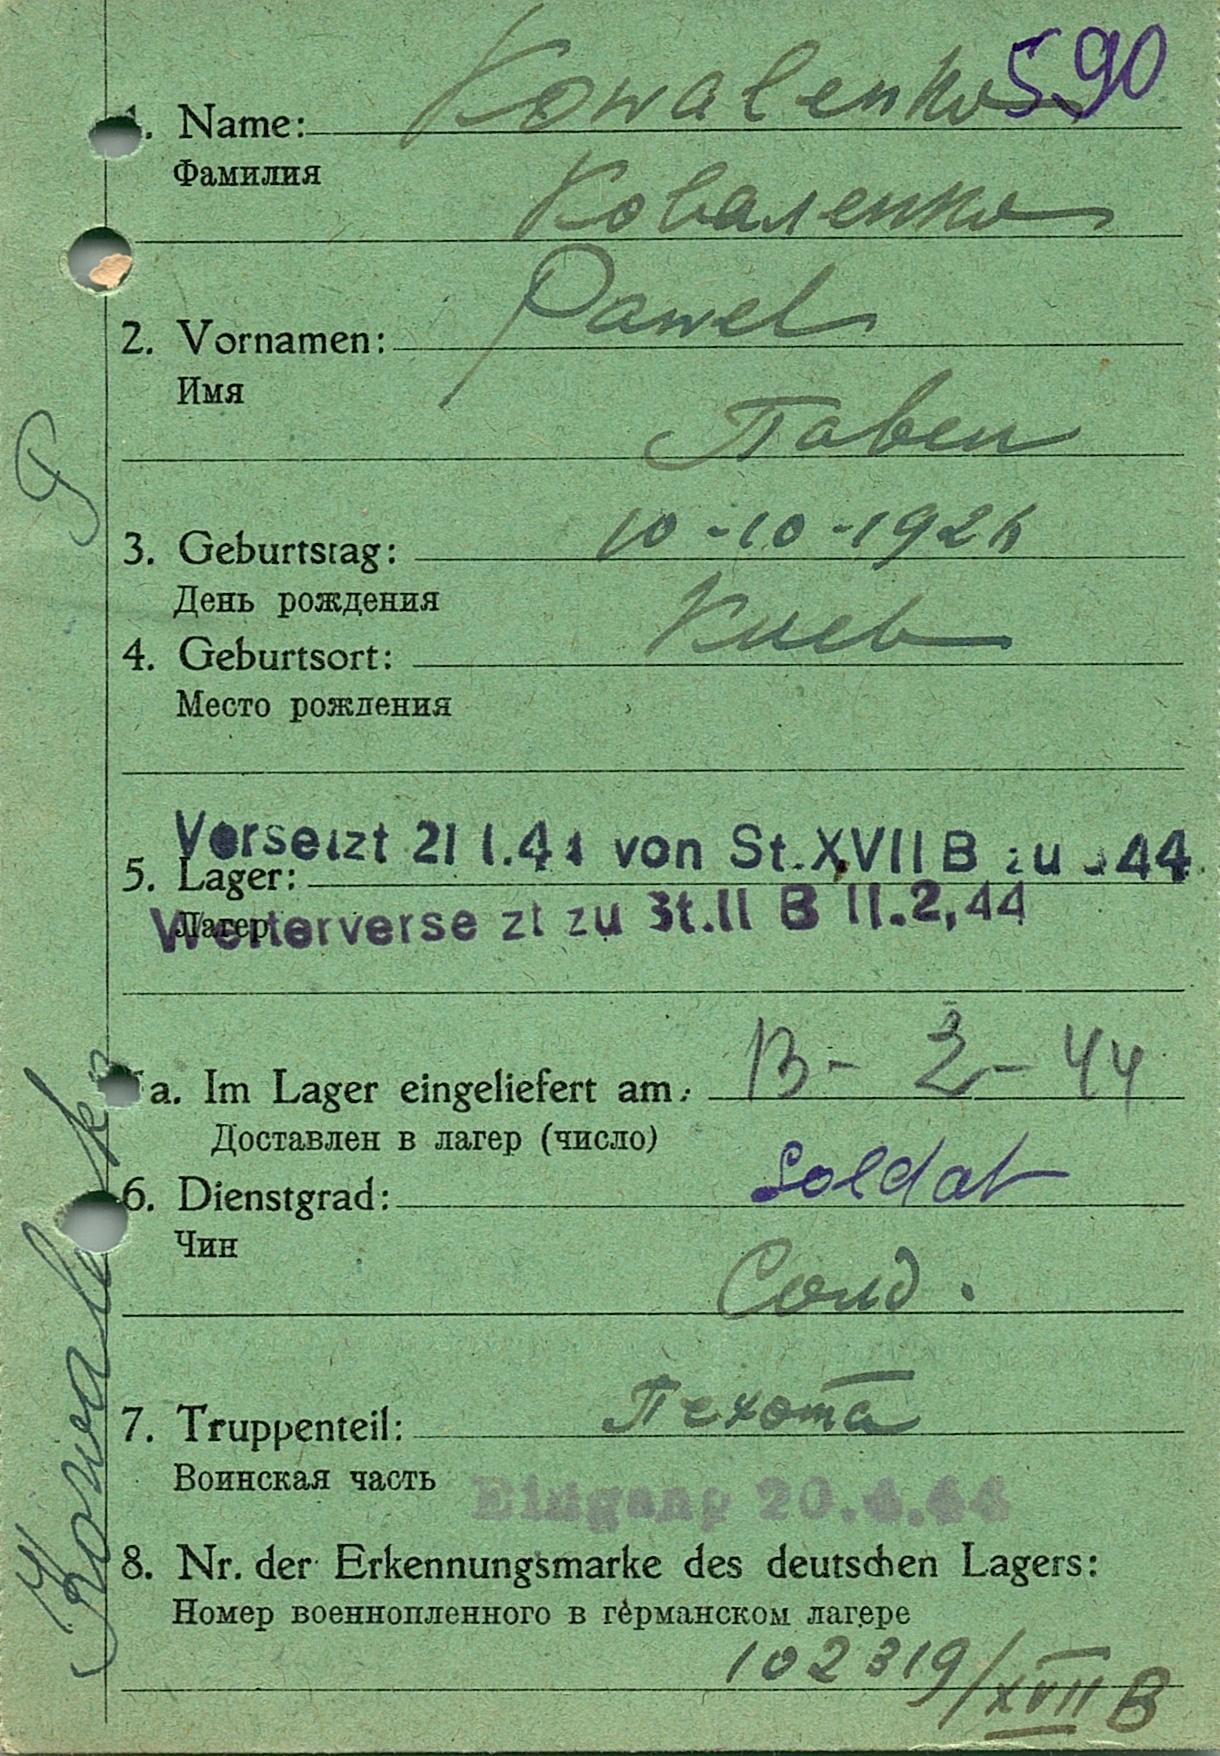 590
1. Name: Kowalenko
Фамилия
Коваленко
2. Vornamen: Pawel
Имя
Павел
P
3. Geburtstag: 10-10-192
День рождения
4. Geburtsort: Киев
Место рождения
Versetzt 21 1.44 von St.XVII B zu 344
5. Lager:
Лагер
Weiterversezt zu St.II B 11.2.44
5a. Im Lager eingeliefert am: 13-2-44
Доставлен в лагер (число)
6. Dienstgrad: Soldat
Чин
Солд.
7. Truppenteil: Пехота
Воинская часть
Eingang 20.4.44
8. Nr. der Erkennungsmarke des deutschen Lagers:
Номер военнопленного в германском лагере
102319/XVII B
Kowalenko